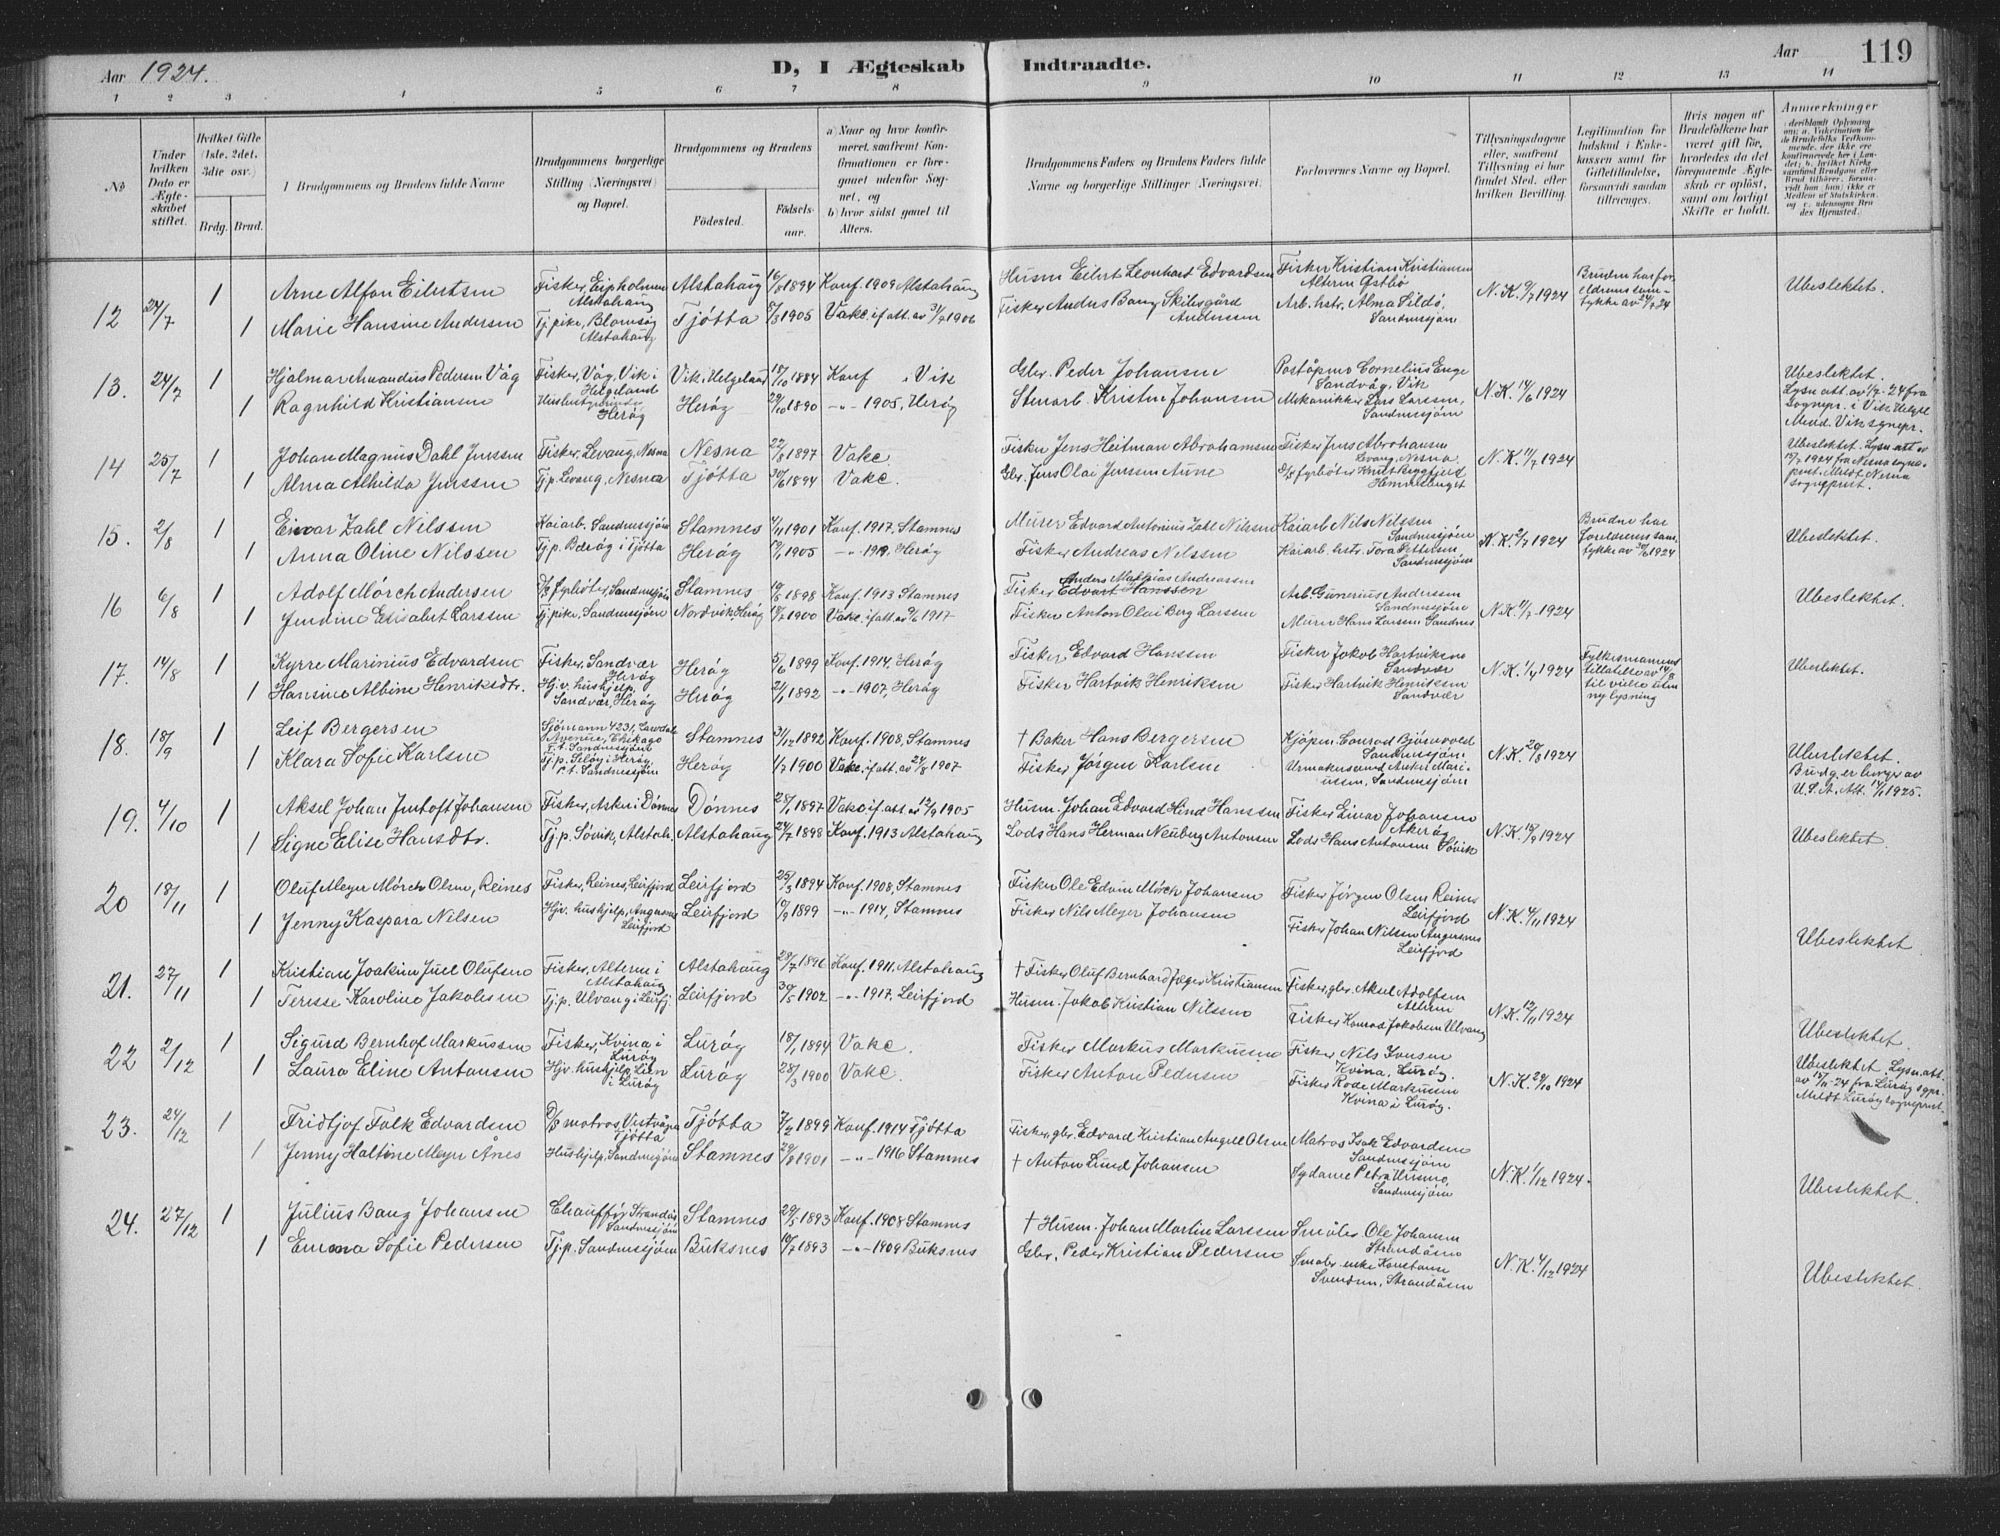 Aar 1924.
D, I Ægteskab Indtraadte.
Aar 119
1 2 3 4 5 6 7 8 9 10 11 12 13 14
№
Under hvilken Dato er Ægteskabet stiftet.
Hvilket Gifte (1ste, 2det, 3die osv.)
Brdg. Brud.
Brudgommens og Brudens fulde Navne
Brudgommens borgerlige Stilling (Næringsvei) og Bopæl.
Brudgommens og Brudens
Födested.
Födselsaar.
a) Naar og hvor konfirmeret, saafremt Konfirmationen er foregaaet udenfor Sognet, og
b) hvor sidst gaaet til Alters.
Brudgommens Faders og Brudens Faders fulde Navne og borgerlige Stillinger (Næringsvei)
Forlovernes Navne og Bopæl.
Tillysningsdagene eller, saafremt Tillysning ei har fundet Sted, efter hvilken Bevilling.
Legitimation for Indskud i Enkekassen samt for Giftetilladelse, forsaavidt saadan tiltrænges.
Hvis nogen af Brudefolkene har været gift før, hvorledes da det foregaaende Ægteskab er oplöst, samt om lovligt Skifte er holdt.
Anmærkninger
12 24/7 1 Arne Alfon Eilertsen Fisker, Eipholmen Alstahaug Alstahaug 16/8 1894 Konf. 1909 Alstahaug Husm Eilert Leonhard Edvardsen Fisker Kristian Kristiansen Altern Østbö N.K. 9/7 1924 Bruden har foreldrenes samtykke av 24/7 24 Ubeslektet.
1 Marie Hansine Andersen Tj.pike, Blomsøy Alstahaug Tjötta 1905 Vakc. if att. av 31/7 1906 Fisker Anders Bang Skilesgård Anderssen Arb. hstr. Alma Sildö, Sandnessjøen
13. 24/7 1 Hjalmar Amandus Pedersen Våg Fisker, Våg, Vik i Helgeland Vik, Helgeland 18/10 1884 Konf " Vik Gbr. Peder Johansen Poståpner Cornelius Enge Sandvåg, Vik N.K. 14/6 1924 Ubeslektet. Lysn att. av 1/7-24 fra Sognepr. i Vik Helgel Medd. Vik sognepr.
1 Ragnhild Kristiansen Husbestyrerinde Heröy Heröy 29/10 1890 -"- 1905, Heröy Stenarb. Kristen Johansen Mekanikker Lars Larssen, Sandnessjøen
14 25/7 1 Johan Magnus Dahl Jenssen Fisker, Levang, Nesna Nesna 22/8 1897 Vakc Fisker Jens Heitman Abrahamsen Fisker Jens Abrahamsen Levang, Nesna N.K. 11/7 1924 Ubeslektet. Lysn att av 15/7 1924 fra Nesna sogneprest. Meldt Nesna sogneprest.
1 Alma Alhilda Jenssen Tj.p. Levang, Nesna Tjötta 30/6 1894 Vakc. Gbr. Jens Olai Jenssen Aune
15. 2/8 1 Einar Zahl Nilssen Kaiarb. Sandnessjøen Stamnes 4/11 1901 Konf. 1917. Stamnes Murer Edvard Antonius Zahl Nilssen Kaiarb Nils Nilssen Sandnessjøen N.K. 2/7 1924 Bruden har foreldrenes samtykke av 30/6 1924 Ubeslektet.
1 Anna Oline Nilssen Tj.p. i Tjötta Heröy 1905 -"- 1919, Heröy Fisker Andreas Nelssen Kaiarb. hstr. Tora Pettersen Sandnessjøen
16 6/8 1 Adolf Mörch Andersen D/S Fyrböter, Sandnessjøen Stamnes 1898 Konf. 1913 Stamnes Anders Mathias Andreassen Fisker Edvart Hanssen Arb. Gunerius Anderssen Sandnessjøen N.K. 11/7 - 1924 Ubeslektet.
1 Jendine Elisabet Larssen Tj.pike, Sandnessjøen Nordvik, Heröy 1900 Vakc. if att. av 9/6 1917 Fisker Anton Olai Berg Larssen Murer Hans Larsen Sandnes
17. 14/8 1 Kyrre Marinius Edvardsen Fisker, Sandvær Heröy Heröy 5/6 1899 Konf. 1914, Heröy Fisker Edvard Hanssen Fisker Jakob Hartviksen Sandvær N.K. 1/4 1924 Fylkesmannens tillatelse av 14/8 til vielse uten ny lysning Ubeslektet.
1 Hansine Albine Henriksdtr. Hjv. hushjelp, Sandvær, Heröy Heröy 2/1 1892 -"- 1907, Heröy Fisker Hartvik Henriksen Fisker Hartvik Henriksen Sandvær
18. 18/9 1 Leif Bergersen Sjømann 4231, Lawdale Avenue, Chikago F.t. Sandnessjøen Stamnes 31/12 1892 Konf. 1908, Stamnes † Baker Hans Bergersen Kjöpm. Conrad Bjørnvold Sandnessjøen N.K. 20/8 1924 Ubeslektet. Brudg. er borger av U.S.A. Att. 14/1 1925.
1 Klara Sofie Karlsen Tj.p. Seløy i Heröy p.t. Sandnessjøen Heröy 1/7 1900 Vakc. if att. av 24/8 1907 Fisker Jörgen Karlsen Urmakersvend Andr. Mariussen, Sandnessjøen
19. 4/10 1 Aksel Johan Jentoft Johansen Fisker, Asker i Dönnes Dönnes 28/1 1897 Vakc if att av 12/9 1905 Husm. Johan Edvard Hind Hanssen Fisker Einar Johansen Akeröy N.K. 19/9 1924 Ubeslektet.
1 Signe Elise Hansdtr. Tj.p. Sövik, Alstah. Alstahaug 24/7 1898 Konf. 1913 Alstahaug Lods Hans Herman Neuberg Antonsen Lods Hans Antonsen Sövik
20 18/11 1 Oluf Meyer Mörch Olsen, Reines Fisker, Reines, Leirfjord Leirfjord 25/3 1894 Konf. 1908, Stamnes Fisker Ole Edvin Möch Johansen Fisker Jörgen Olsen Reines Leirfjord N.K. 4/11 1924 Ubeslektet
1 Jenny Kaspara Nilsen Hjv. hushjelp, Angersnes Leirfjord Leirfjord 19/9 1899 -"- 1914, Stamnes Fisker Nils Meyer Johansen Fisker Johan Nilssen Angersnes Leirfjord
21. 27/11 1 Kristian Joakim Juel Olufsen Fisker, Altern i Alstahaug Alstahaug 29/7 1896 Konf. 1911. Alstahaug † Fisker Oluf Bernhard Jæger Kristiansen Fisker, gbr. Aksel Adolfsen Altern N.K. 12/11 1924 Ubeslektet.
1 Teresse Karoline Jakobsen Tj.p. Ulvang i Leirfj Leirfjord 30/5 1902 -"- 1917, Leirfjord Husm. Jakob Kristian Nilssen Fisker Konrad Jakobsen Ulvang
22 2/12 1 Sigurd Bernhof Markussen Fisker, Kvina i Luröy Luröy 18/1 1894 Vakc. Fisker Markus Markussen Fisker Nils Ivensen Kvina, Luröy. N.K. 29/10 1924 Ubeslektet. Lysn. att. av 15/11-24 fra Luröy sgpr. Meldt Luröy sogneprest.
1 Laura Eline Antonsen Hjv. hushjelp, Lien i Luröy Luröy 28/3 1900 Vakc. Fisker Anton Pedersen Fisker Rode Markussen Kvina i Luröy.
23. 24/12 1 Fridtjof Falk Edvardsen D/S matros, Vistvågen Tjötta Tjötta 7/2 1899 Konf. 1914 Tjötta Fisker, gbr. Edvard Kristian Angell Olsen Matros Isak Edvardsen Sandnessjøen N.K. 1/12 1924. Ubeslektet.
1 Jenny Haltine Meyer Ånes Hushjelp, Sandnessjøen Stamnes 29/8 1901 -"- 1916 Stamnes † Anton Lund Johansen Sydame Petra Urisno, Sandnessjøen
24. 27/12 1 Julius Bang Johansen Chauffør Strandås Sandnessjøen Stamnes 29/5 1893 Konf. 1908 Stamnes † Husm. Johan Martin Larssen Småbr Ole Johansen Strandåsen N.K. 4/12 1924 Ubeslektet.
1 Emma Sofie Pedersen Tj.p. Sandnessjøen Buksnes 19/7 1893 -"- 1909 Buksnes Gbr, Peder Kristian Pedersen Småbr. enke Konstanse Svendsen, Strandåsen